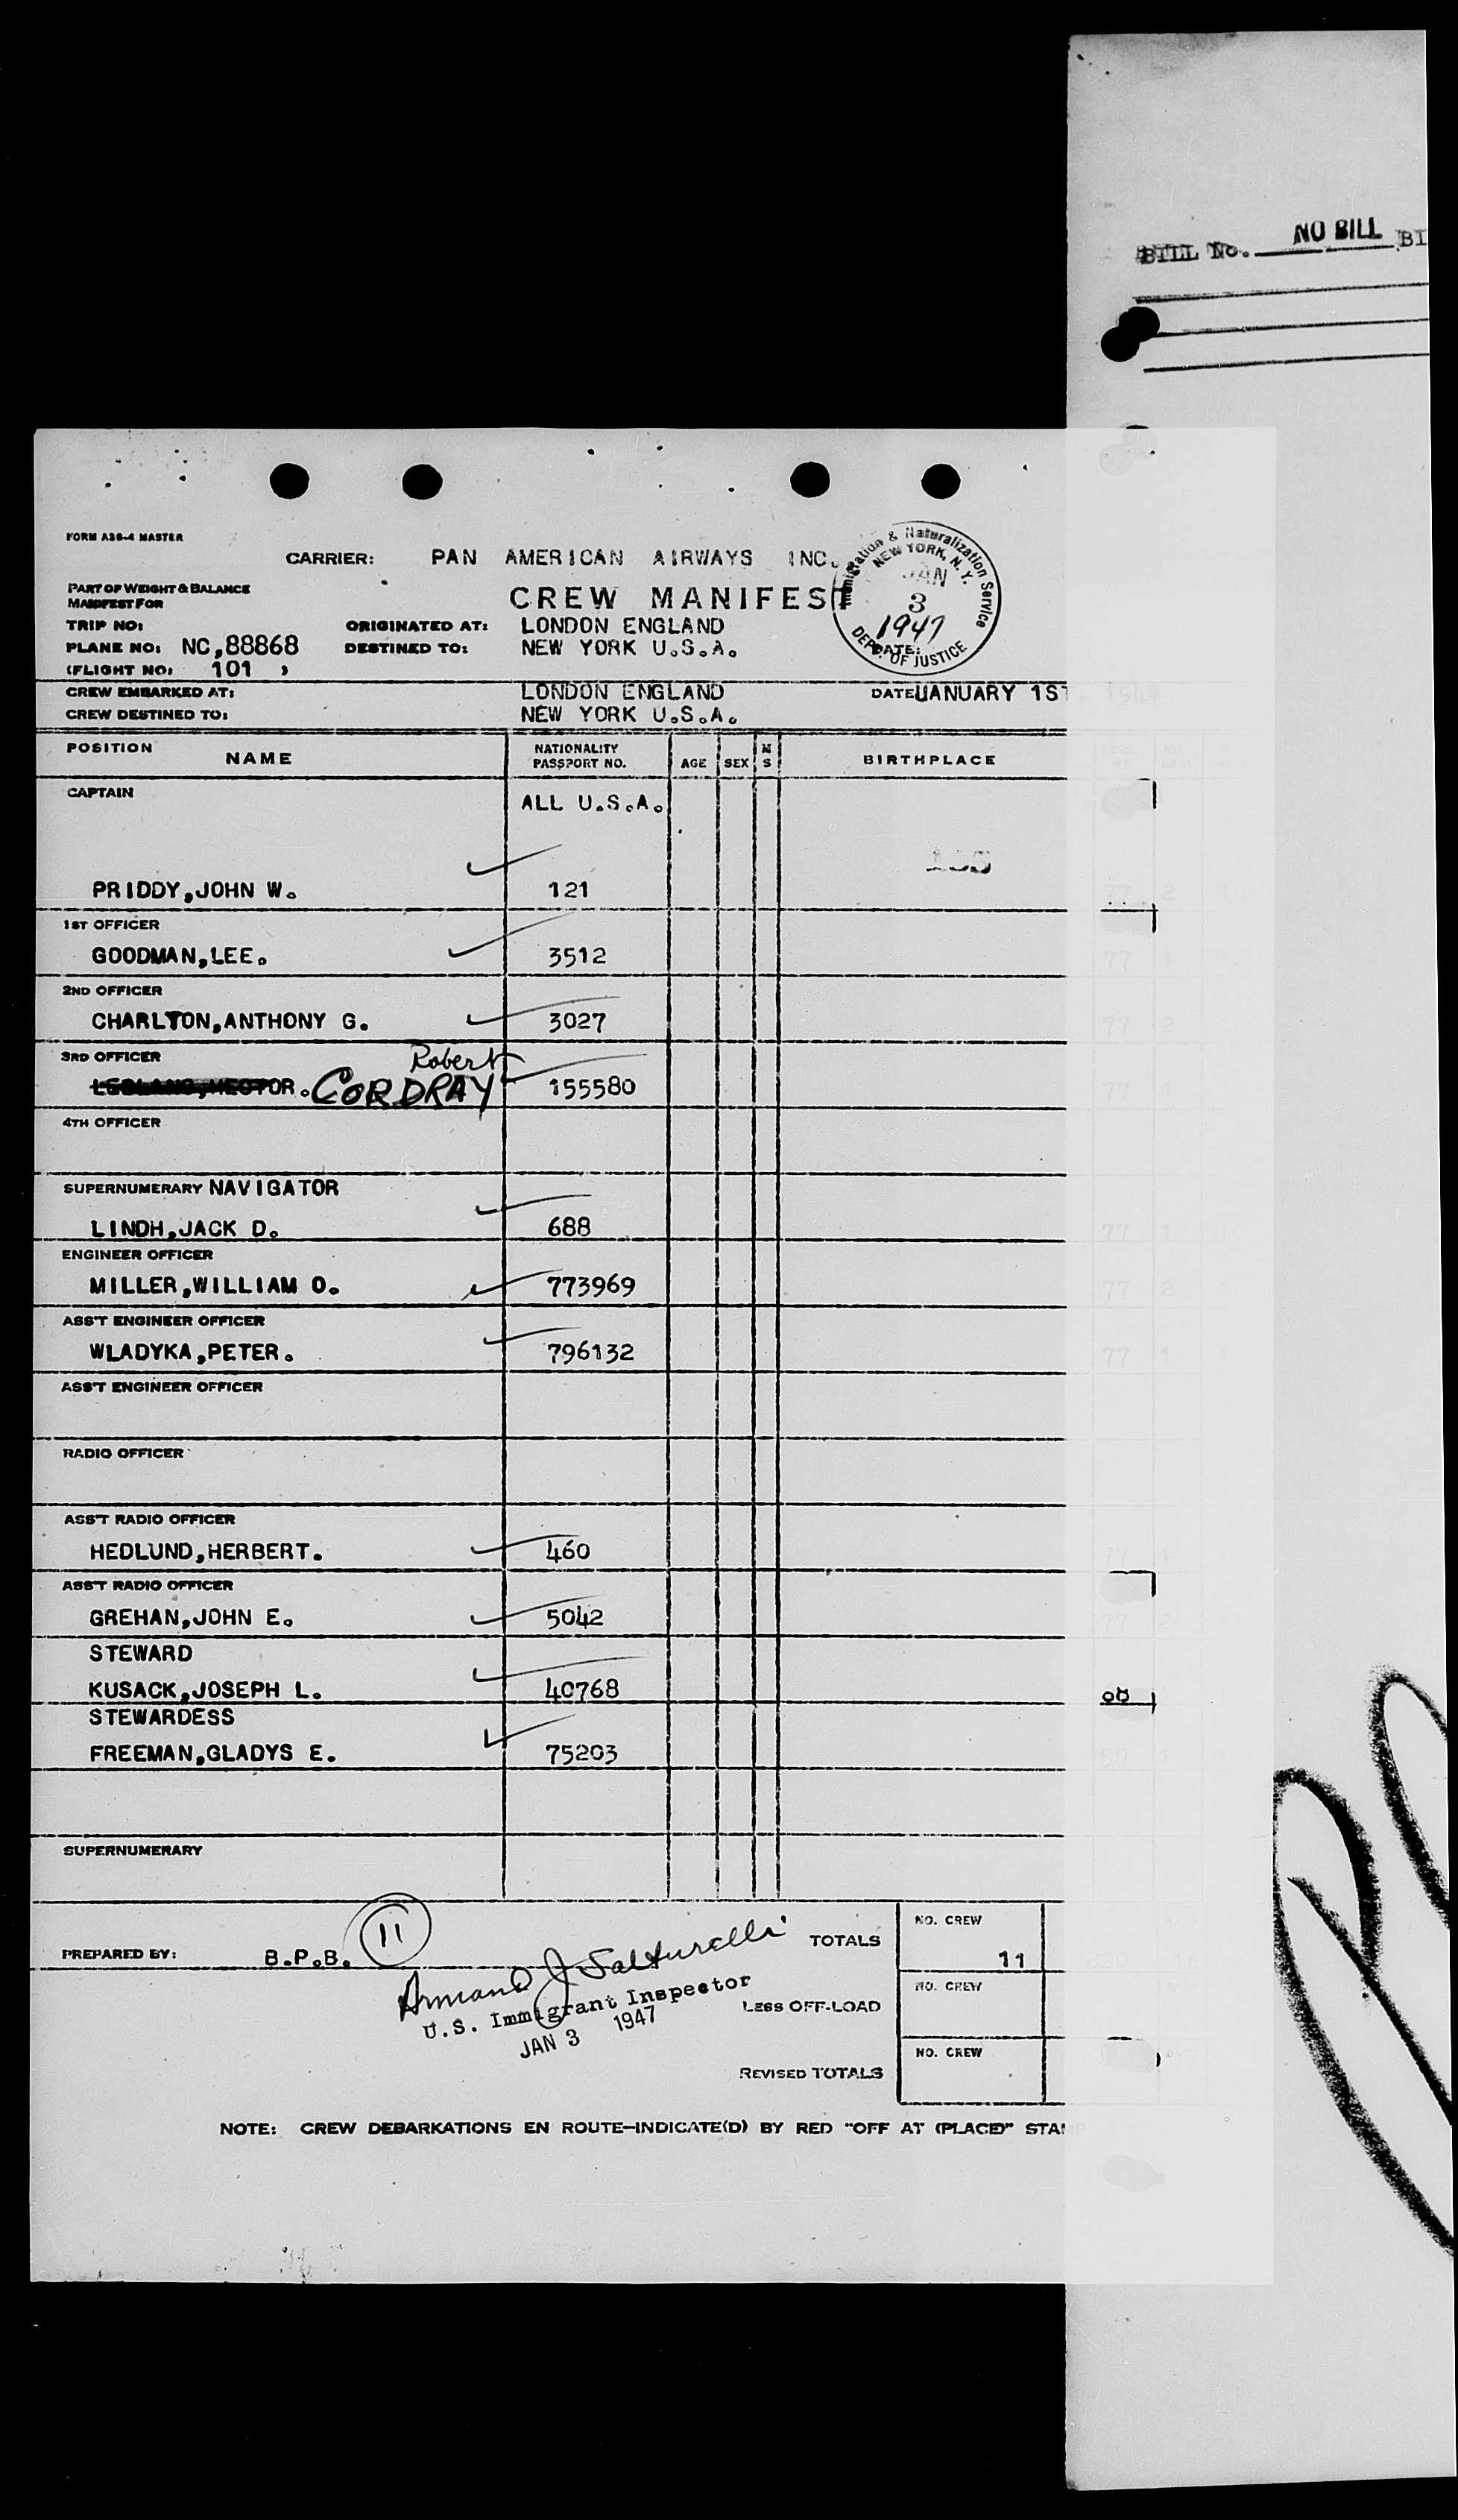 BILL No. NO BILL BI
FORM A38-4 MASTER
CARRIER: PAN AMERICAN AIRWAYS INC.
PART OF WEIGHT & BALANCE
MANIFEST FOR
CREW MANIFEST
Immigration & Naturalization Service
NEW YORK, N. Y.
JAN
3
1947
DEPT. OF JUSTICE
TRIP NO: ORIGINATED AT: LONDON ENGLAND
PLANE NO: NC,88868 DESTINED TO: NEW YORK U.S.A. DATE:
(FLIGHT NO: 101 )
CREW EMBARKED AT: LONDON ENGLAND DATE: JANUARY 1ST
CREW DESTINED TO: NEW YORK U.S.A.
POSITION NAME NATIONALITY PASSPORT NO. AGE SEX M S BIRTHPLACE
CAPTAIN ALL U.S.A.
PRIDDY,JOHN W. 121
1ST OFFICER
GOODMAN,LEE. 3512
2ND OFFICER
CHARLTON,ANTHONY G. 3027
3RD OFFICER Robert
CORDRAY 155580
4TH OFFICER
SUPERNUMERARY NAVIGATOR
LINDH,JACK D. 688
ENGINEER OFFICER
MILLER,WILLIAM O. 773969
ASS'T ENGINEER OFFICER
WLADYKA,PETER. 796132
ASS'T ENGINEER OFFICER
RADIO OFFICER
ASS'T RADIO OFFICER
HEDLUND,HERBERT. 460
ASS'T RADIO OFFICER
GREHAN,JOHN E. 5042
STEWARD
KUSACK,JOSEPH L. 40768
STEWARDESS
FREEMAN,GLADYS E. 75203
SUPERNUMERARY
PREPARED BY: B.P.B. 11 TOTALS NO. CREW 11
Armand J Salturelli
U.S. Immigrant Inspector
JAN 3 1947
LESS OFF-LOAD NO. CREW
REVISED TOTALS NO. CREW
NOTE: CREW DEBARKATIONS EN ROUTE—INDICATE(D) BY RED "OFF AT (PLACE)" STAMP